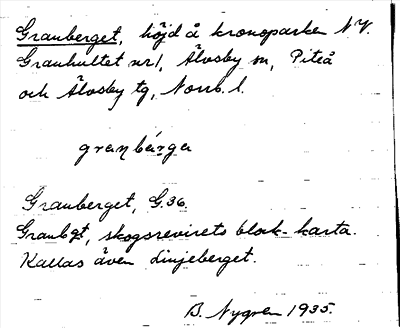 Granberget, höjd å kronoparken N.V.
Granhultet nr1, Älvsby sn, Piteå
och Älvsby tg, Norrb. l.
granbærga
Granberget, G.36.
Granbgt, skogsrevirets blok-karta.
Kallas även Linjeberget.
B. Nygren 1935.